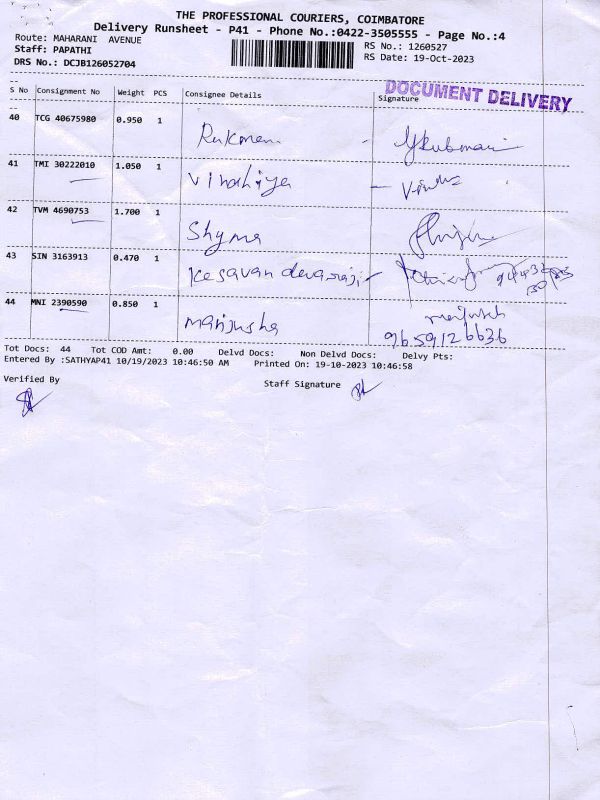 THE PROFESSIONAL COURIERS, COIMBATORE
Delivery Runsheet - P41 - Phone No.:0422-3505555 - Page No.:4
Route: MAHARANI AVENUE
RS No.: 1260527
Staff: PAPATHI
RS Date: 19-Oct-2023
DRS No.: DCJB126052704
DOCUMENT DELIVERY
S No Consignment No Weight PCS Consignee Details Signature
40 TCG 40675980 0.950 1
Rukmani
41 TMI 30222010 1.050 1
42 TVM 4690753 1.700 1
Shyma
43 SIN 3163913 0.470 1
Kesavan devaraj
44 MNI 2390590 0.850 1
Manjusha
9659126636
Tot Docs: 44 Tot COD Amt: 0.00 Delvd Docs: Non Delvd Docs: Delvy Pts:
Entered By :SATHYAP41 10/19/2023 10:46:50 AM Printed On: 19-10-2023 10:46:58
Verified By
Staff Signature